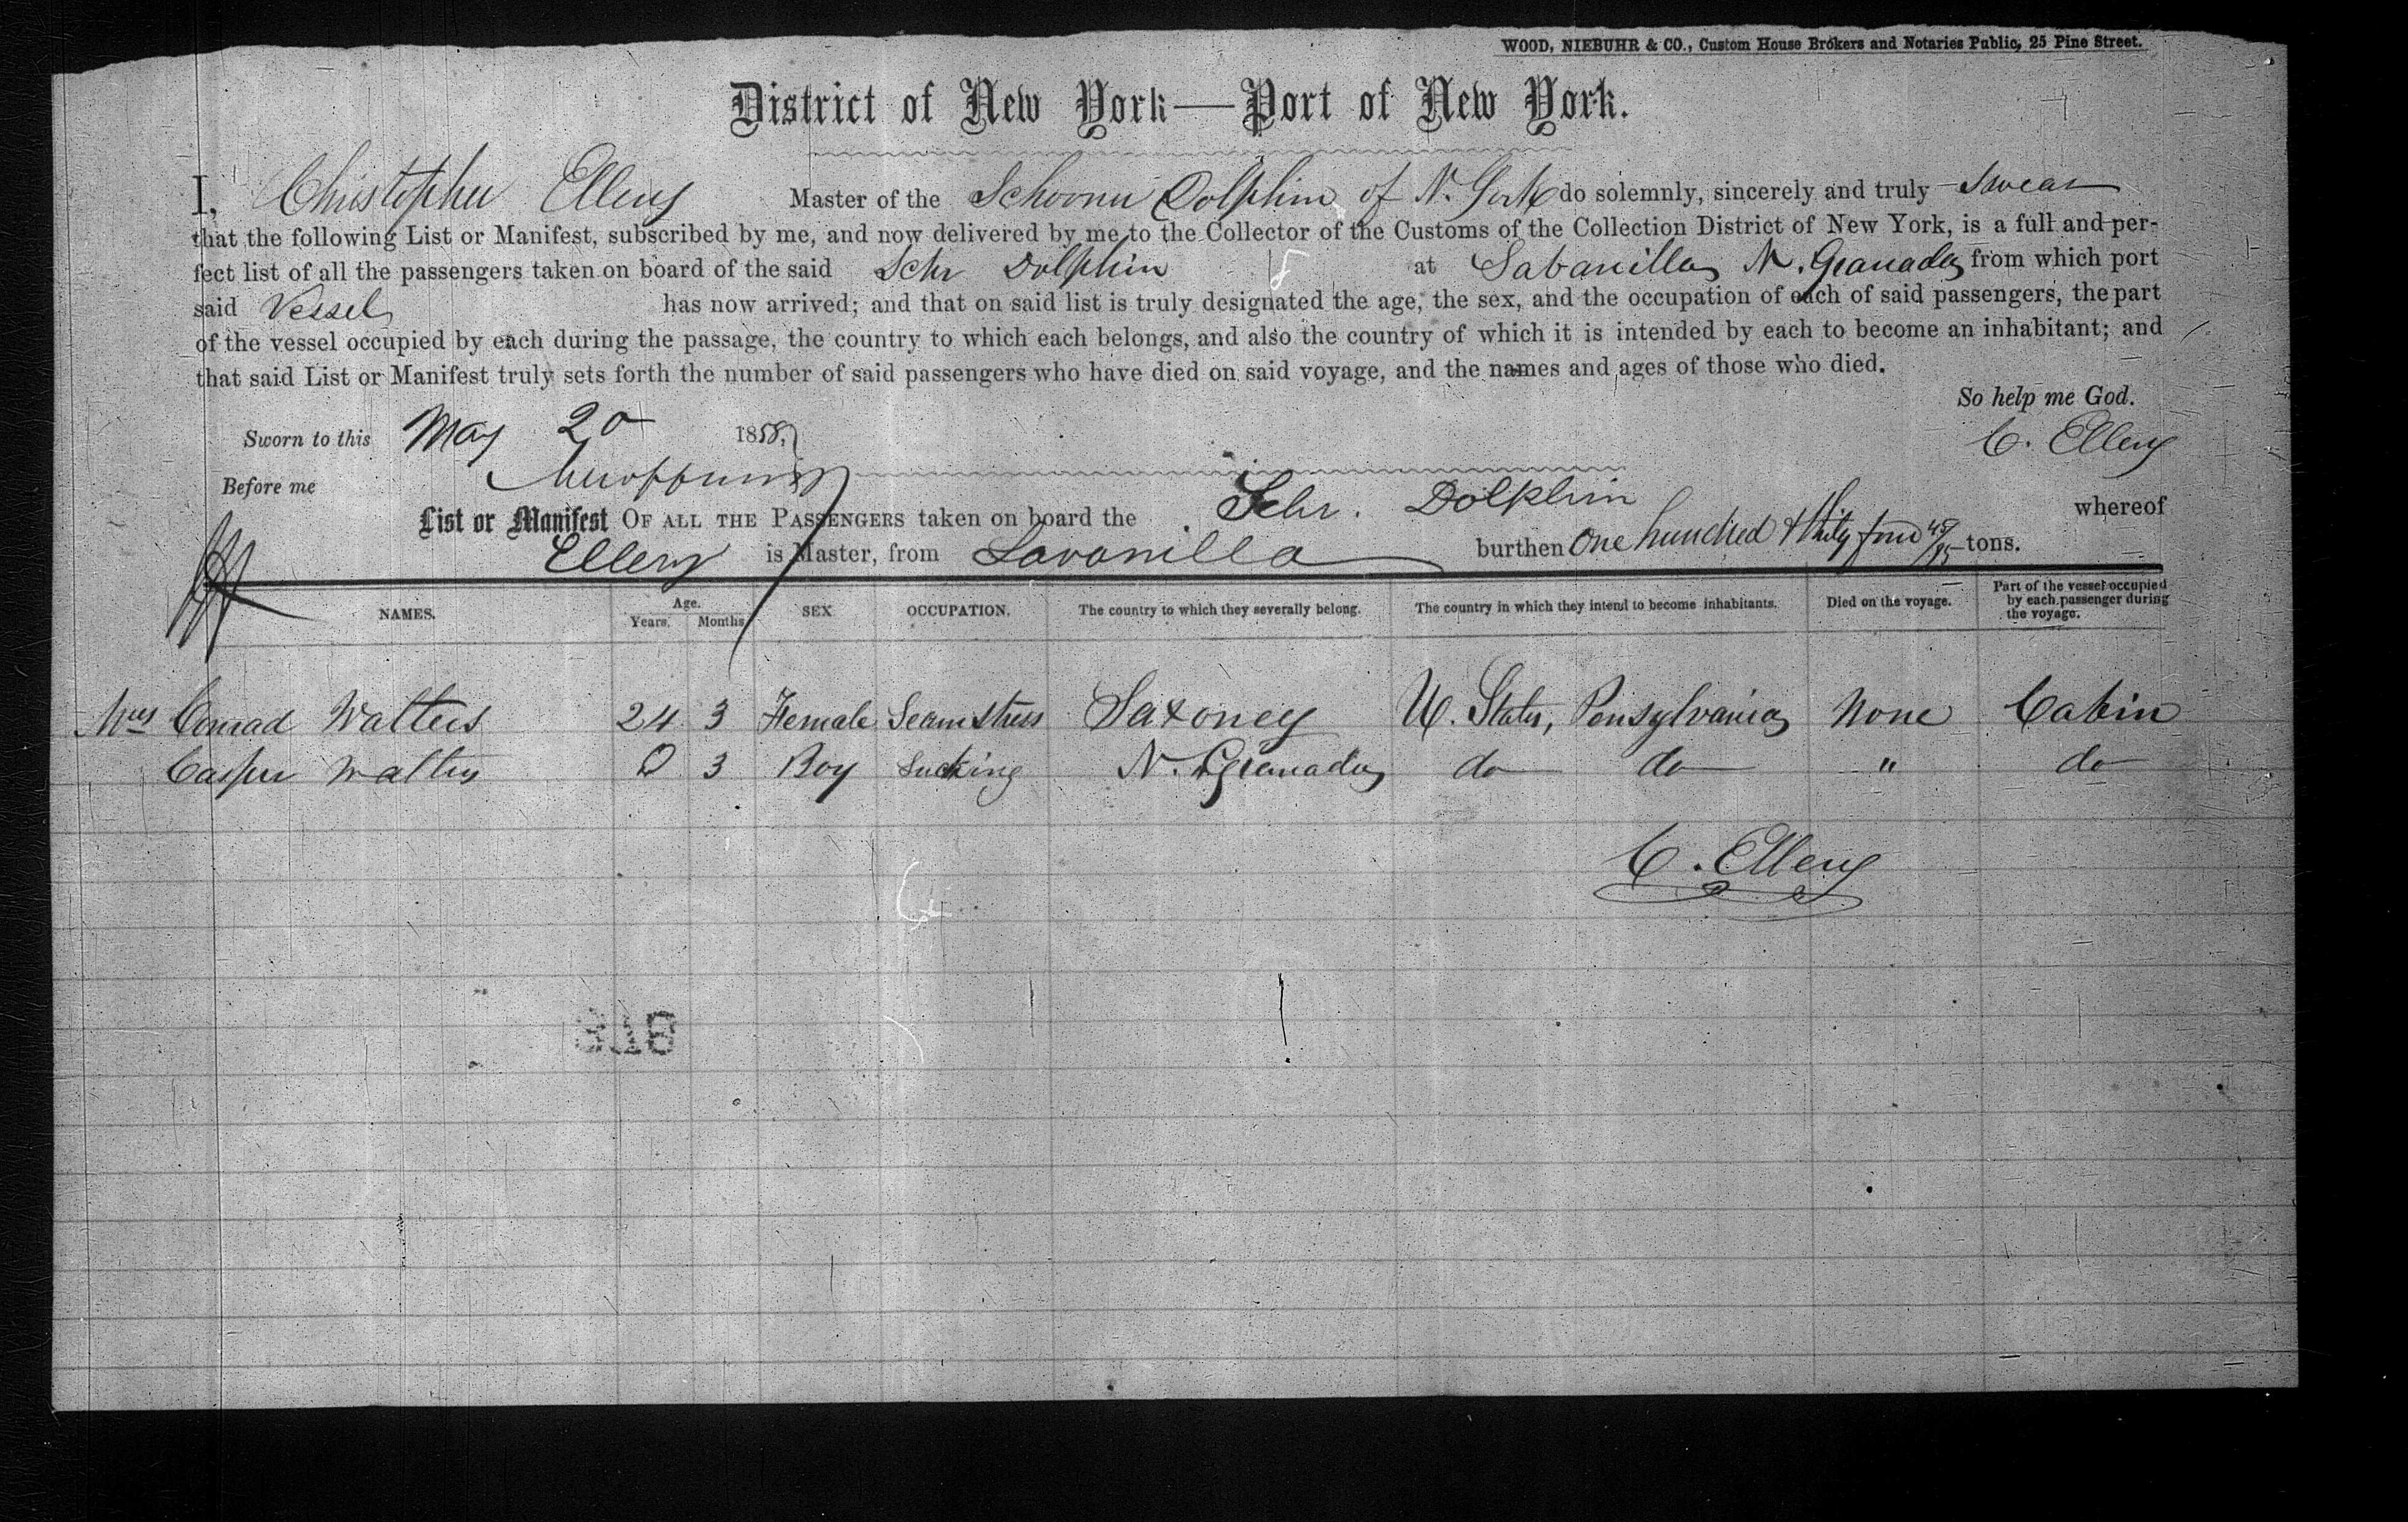 WOOD, NIEBUHR & CO., Custom House Brokers and Notaries Public, 25 Pine Street.
District of New York—Port of New York.
I, Christopher Ellery Master of the Schooner Dolphin of N. York do solemnly, sincerely and truly swear
that the following List or Manifest, subscribed by me, and now delivered by me to the Collector of the Customs of the Collection District of New York, is a full and per-
fect list of all the passengers taken on board of the said Schr Dolphin at Sabanilla, N. Granada, from which port
said Vessel has now arrived; and that on said list is truly designated the age, the sex, and the occupation of each of said passengers, the part
of the vessel occupied by each during the passage, the country to which each belongs, and also the country of which it is intended by each to become an inhabitant; and
that said List or Manifest truly sets forth the number of said passengers who have died on said voyage, and the names and ages of those who died.
So help me God.
Sworn to this May 20 1858, C. Ellery
Before me
List or Manifest OF ALL THE PASSENGERS taken on board the Schr. Dolphin whereof
Ellery is Master, from Savanilla burthen One hundred & thirty four 45/95 tons.
NAMES. Age. Years. Months SEX OCCUPATION. The country to which they severally belong. The country in which they intend to become inhabitants. Died on the voyage. Part of the vessel occupied by each passenger during the voyage.
Mrs Conrad Walters 24 3 Female Seamstress Saxoney U. States, Pensylvania None Cabin
Casper Walters 0 3 Boy Sucking N. Granada do do " do
C. Ellery